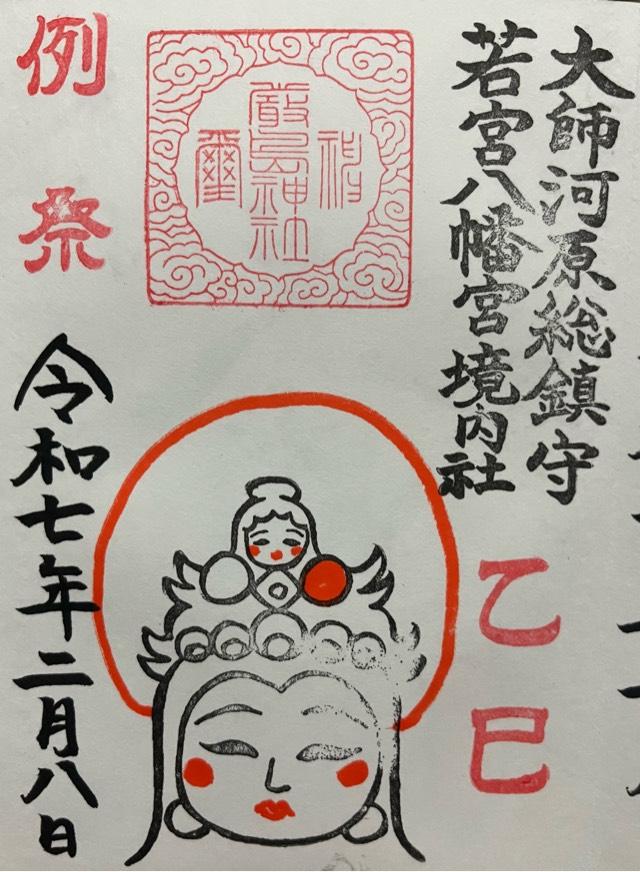 大師河原総鎮守
若宮八幡宮境内社
乙巳
厳島神社
璽
例祭
令和七年二月八日